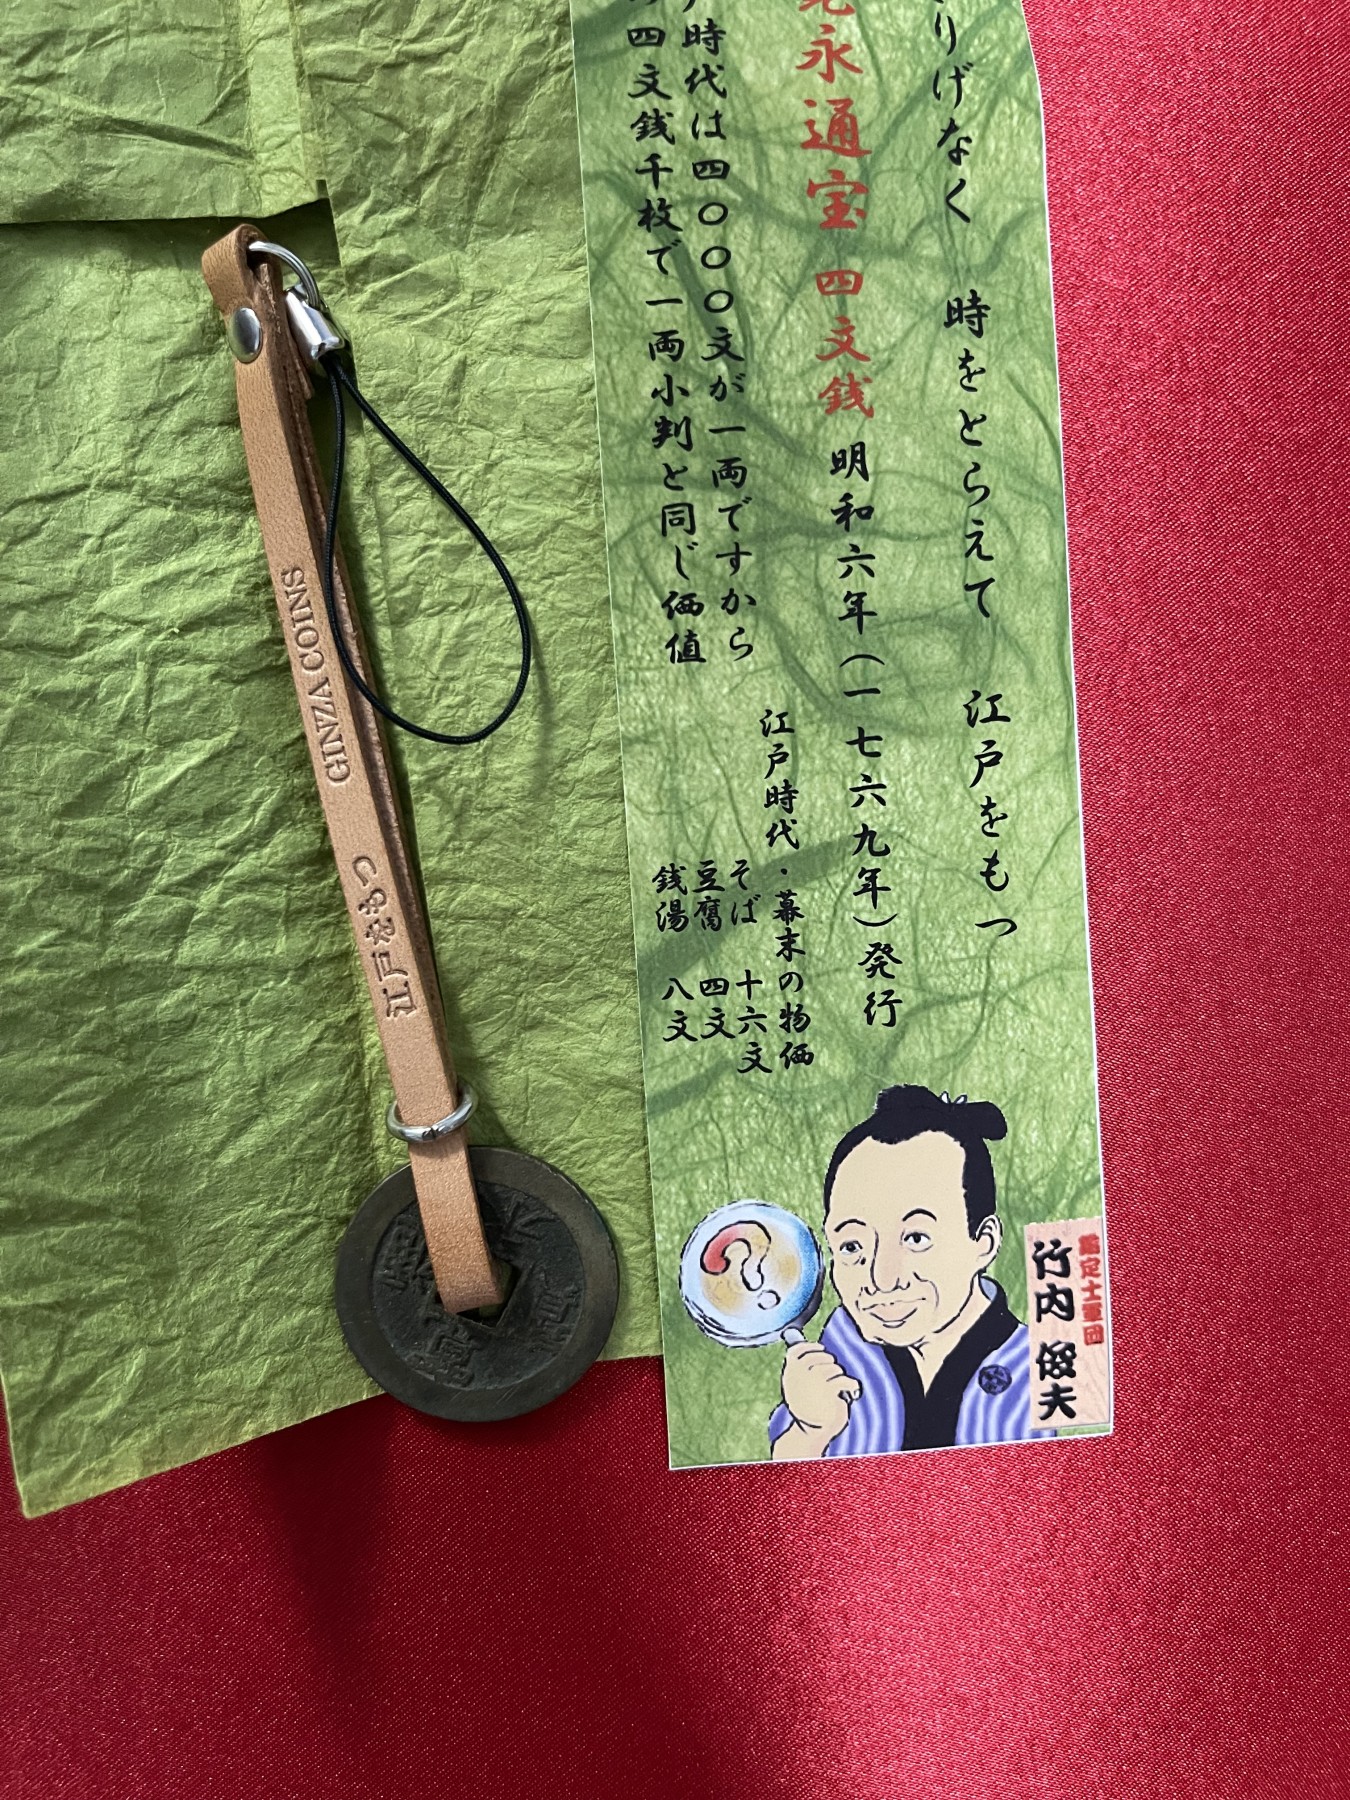 りげなく　時をとらえて　江戸をもつ
永通宝　四文銭　明和六年（一七六九年）発行
時代は四〇〇〇文が一両ですから
四文銭千枚で一両小判と同じ価値
江戸時代・幕末の物価
そば　十六文
豆腐　四文
銭湯　八文
鑑定士軍団
竹内 俊夫
GINZA COINS
江戸をもつ